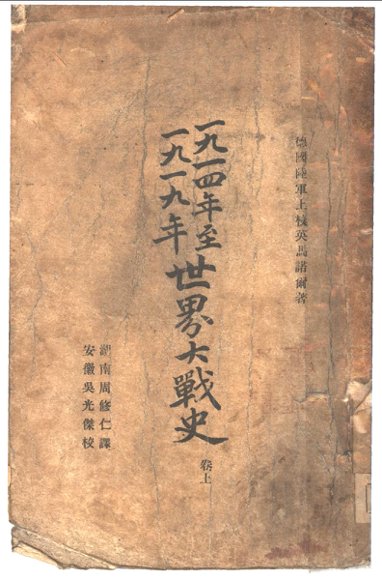 德國陸軍上校英馬諾爾著
一九一四年至
一九一九年
世界大戰史
卷上
湖南周修仁譯
安徽吳光傑校